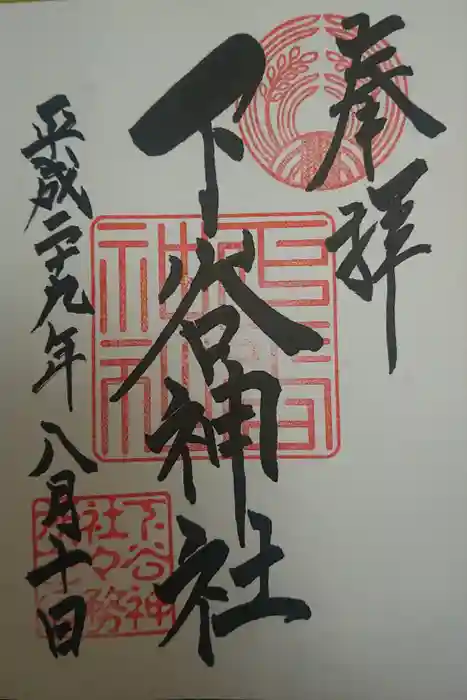 奉拝
下谷神社
平成二十九年八月十日
下谷神
社々務